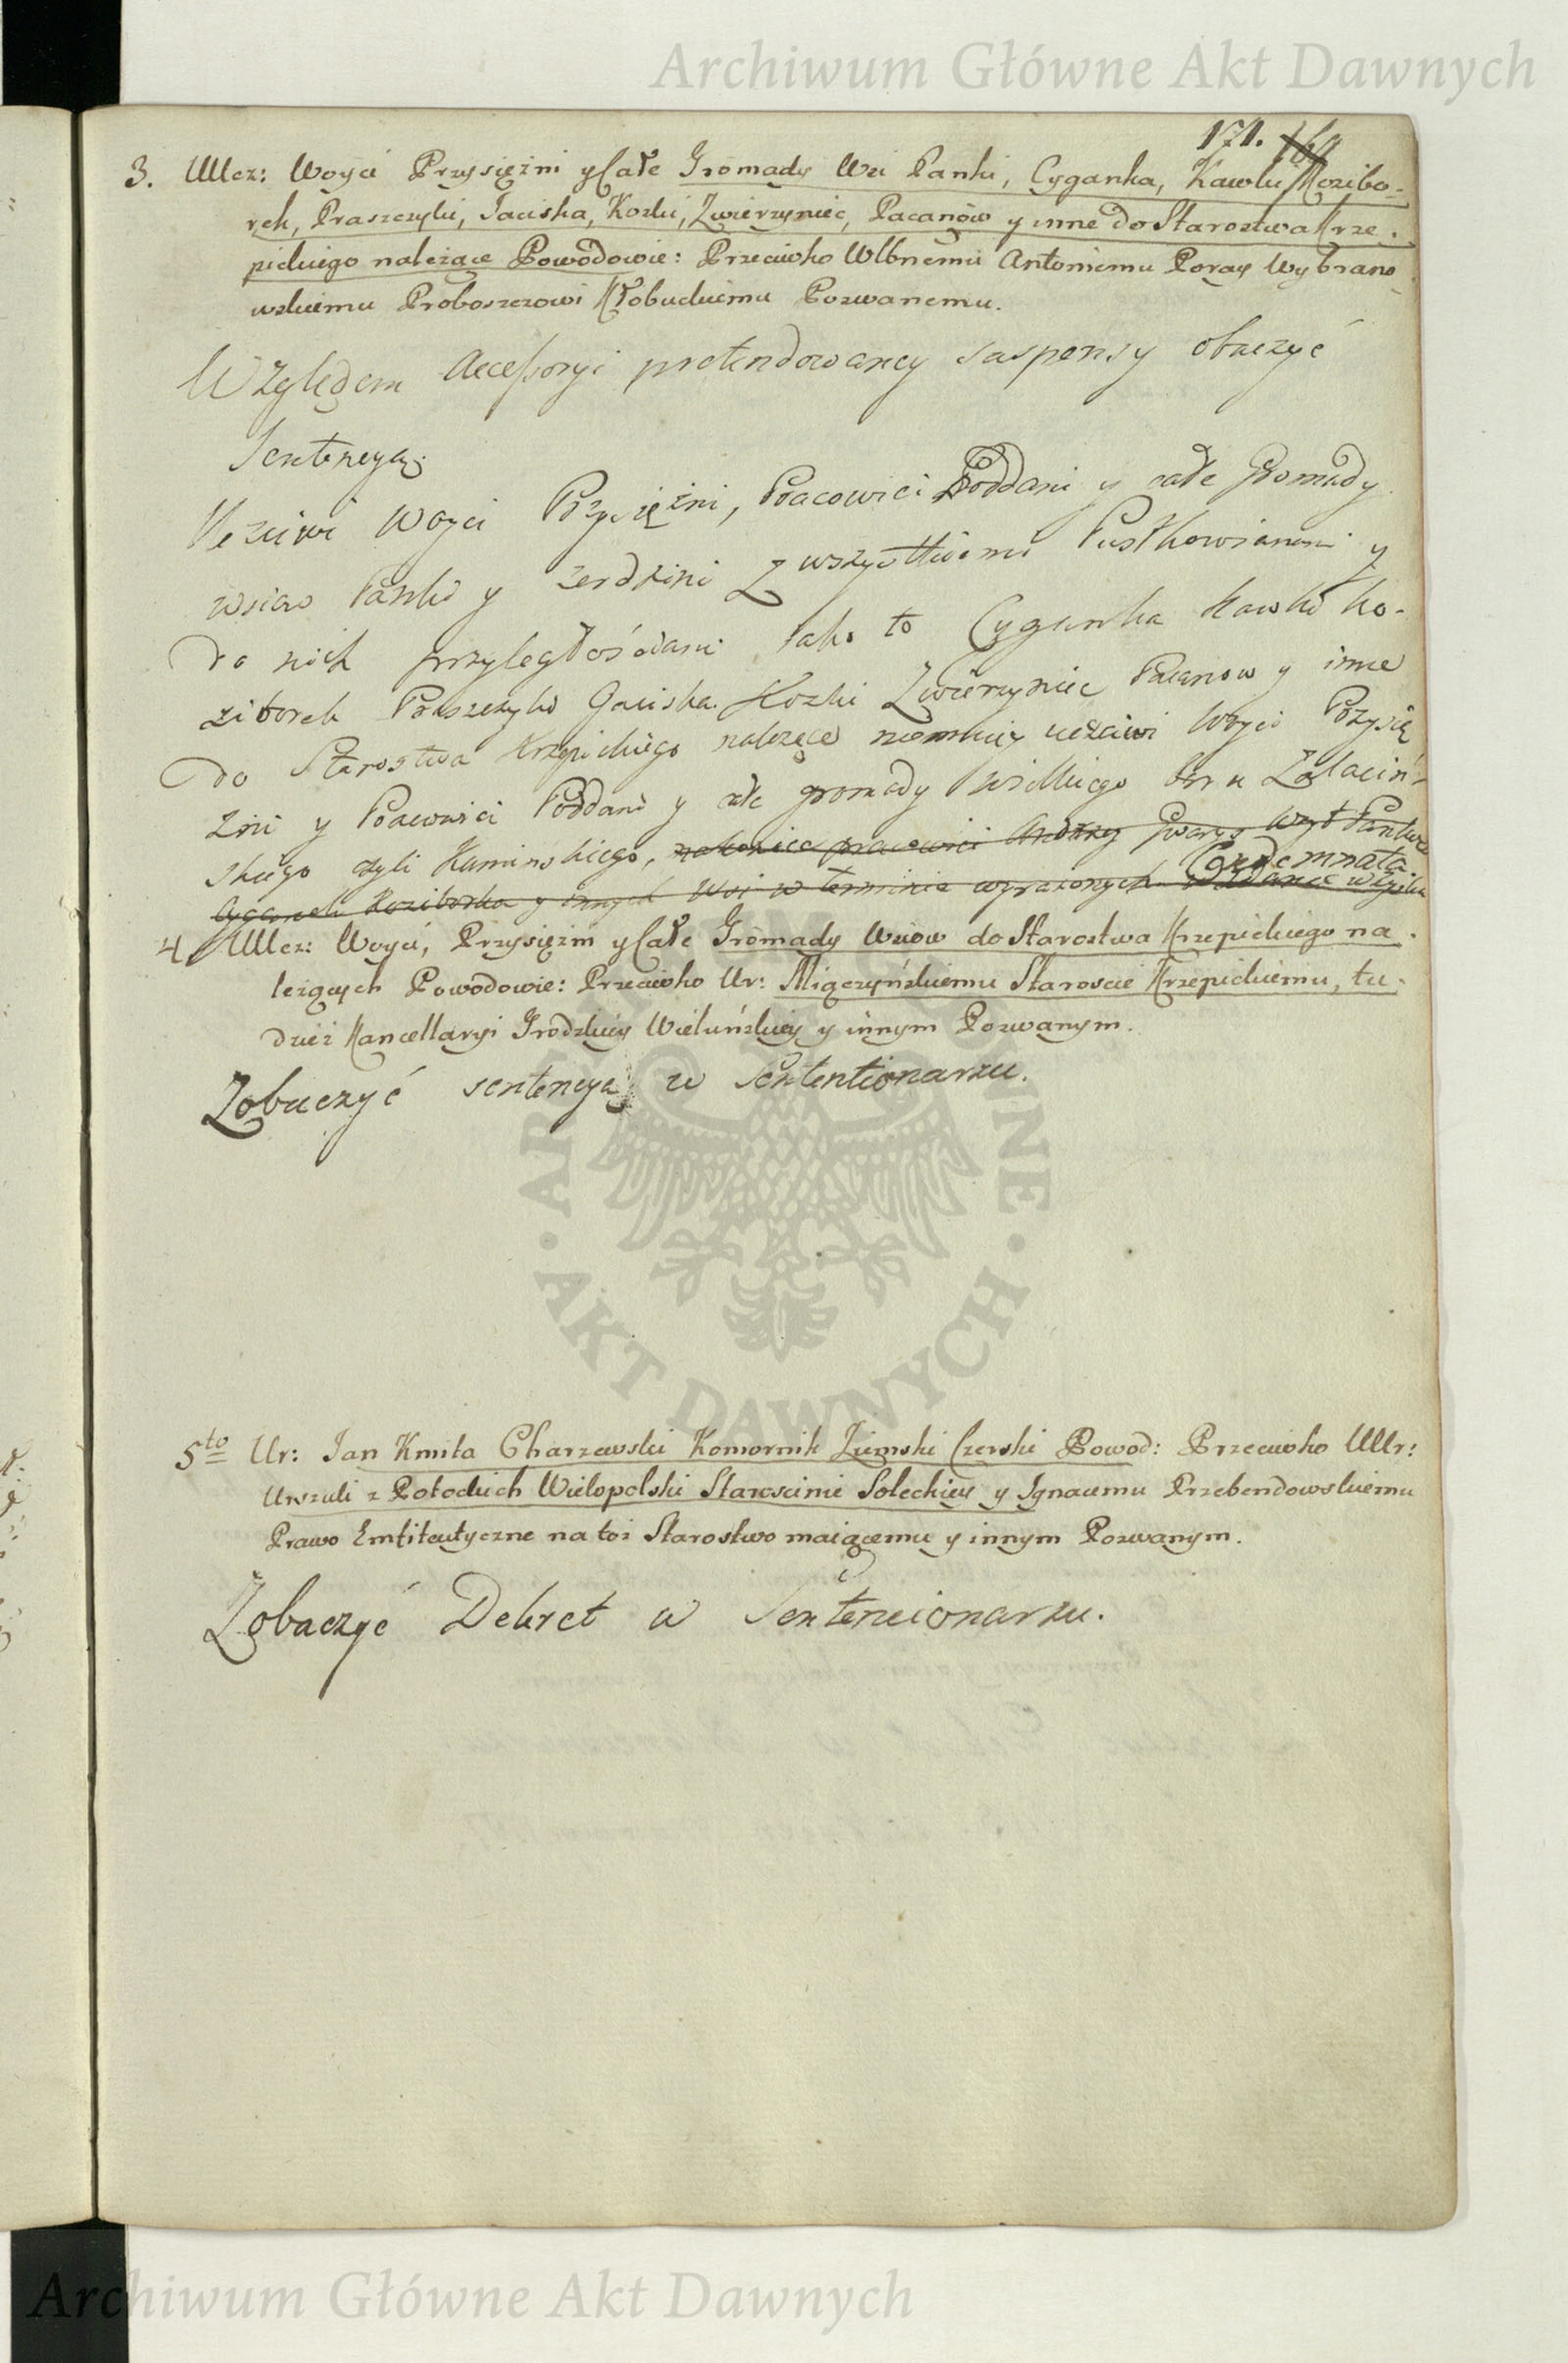 Archiwum Główne Akt Dawnych
171. 169
3. UUcz: Woyci Przysięźni y Całe Gromady Wsi Panki, Cyganka, Kawki Kozibo-
rek, Praszczyki, Jaciska, Kozki, Zwierzyniec, Pacanów y inne do Starostwa Krze-
pickiego należące Powodowie: Przeciwko Wlbnemu Antoniemu Poray Wybrano
wskiemu Proboszczowi Kłobuckiemu Pozwanemu.
Względem Accessoryi pretendowaney suspensy obaczyć
Sentencyą.
Uczciwi Woyci Przysiężni, Pracowici Poddani y całe Gromady
wsiow Panki y Zerdzini z wszystkiemi Pustkowianemi y
do nich przyległościami jako to Cyganka Kawki Ko-
ziborek Praszczyki Gaciska Kozki Zwierzyniec Pacanow y inne
do Starostwa Krzepickiego należące niemniey uczciwi Woyci Przysię
żni y Pracowici Poddani y całe gromady wielkiego
skiego czyli Kaminskiego, pracowici Andrzey Woyt Panków
Condemnata
Cyganek Koziborka y innych Wsi w terminie wyrażonych
4. UUcz: Woyci, Przysięźni y Całe Gromady Wsiow do Starostwa Krzepickiego na-
leżących Powodowie: Przeciwko Ur: Miączyńskiemu Staroscie Krzepickiemu, tu-
dzież Kancellaryi Grodzkiey Wieluńskiey y innym Pozwanym.
Zobaczyć sentencyą w Sententionarzu.
ARCHIWUM GŁÓWNE · AKT DAWNYCH ·
5to Ur: Jan Kmita Charzewski Komornik Ziemski Czerski Powod: Przeciwko UUr:
Urszuli z Potockich Wielopolski Starościnie Soleckiey y Ignacemu Przebendowskiemu
Prawo Emfiteutyczne na toż Starostwo maiącemu y innym Pozwanym.
Zobaczyć Dekret w Sentencionarzu.
Archiwum Główne Akt Dawnych